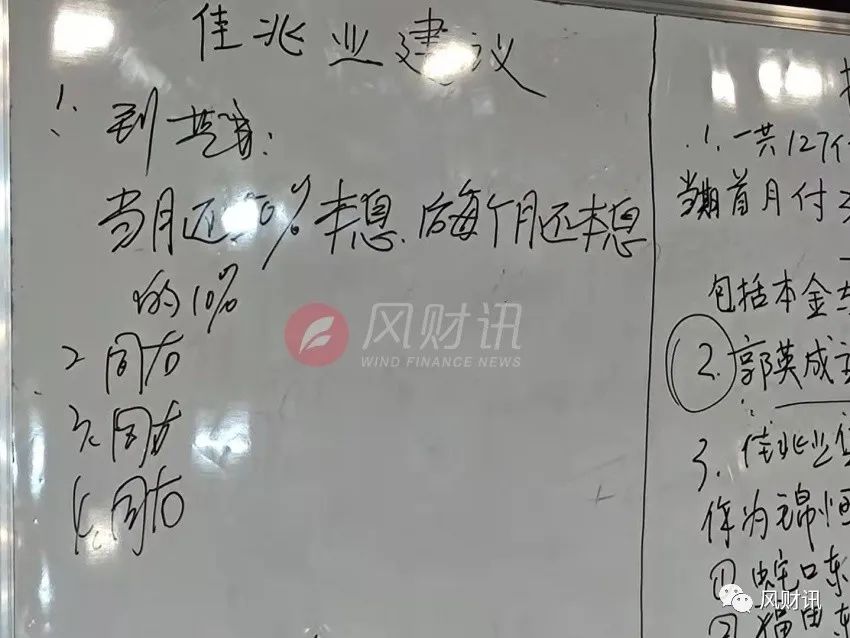 佳兆业建议
1. 到共富:
当月还10%本息.后每个月还本息
的10%
2 同右
3. 同右
4. 同右
风财讯
WIND FINANCE NEWS
1. 一共127
当期首月付
包括本金
2. 郭英成
3. 佳兆业
作为锦恒
① 蛇口东
②
风财讯